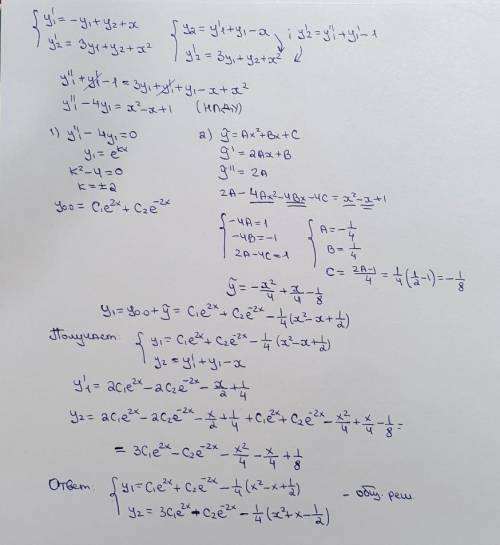 { y'₁ = -y₁ + y₂ + x { y₂ = y'₁ + y₁ - x ; y'₂ = y''₁ + y'₁ - 1
{ y'₂ = 3y₁ + y₂ + x² { y'₂ = 3y₁ + y₂ + x²
y''₁ + y'₁ - 1 = 3y₁ + y'₁ + y₁ - x + x²
y''₁ - 4y₁ = x² - x + 1 (НЛДУ)
1) y''₁ - 4y₁ = 0
y₁ = e^(kx)
k² - 4 = 0
k = ±2
y₀₀ = C₁e^(2x) + C₂e^(-2x)
2) ỹ = Ax² + Bx + C
ỹ' = 2Ax + B
ỹ'' = 2A
2A - 4Ax² - 4Bx - 4C = x² - x + 1
{ -4A = 1 { A = -1/4
{ -4B = -1 { B = 1/4
{ 2A - 4C = 1 { C = (2A-1)/4 = 1/4(1/2 - 1) = -1/8
ỹ = -x²/4 + x/4 - 1/8
y₁ = y₀₀ + ỹ = C₁e^(2x) + C₂e^(-2x) - 1/4(x² - x + 1/2)
Получаем: { y₁ = C₁e^(2x) + C₂e^(-2x) - 1/4(x² - x + 1/2)
{ y₂ = y'₁ + y₁ - x
y'₁ = 2C₁e^(2x) - 2C₂e^(-2x) - x/2 + 1/4
y₂ = 2C₁e^(2x) - 2C₂e^(-2x) - x/2 + 1/4 + C₁e^(2x) + C₂e^(-2x) - x²/4 + x/4 - 1/8 =
= 3C₁e^(2x) - C₂e^(-2x) - x²/4 - x/4 + 1/8
Ответ: { y₁ = C₁e^(2x) + C₂e^(-2x) - 1/4(x² - x + 1/2) - общ. реш
{ y₂ = 3C₁e^(2x) - C₂e^(-2x) - 1/4(x² + x - 1/2)